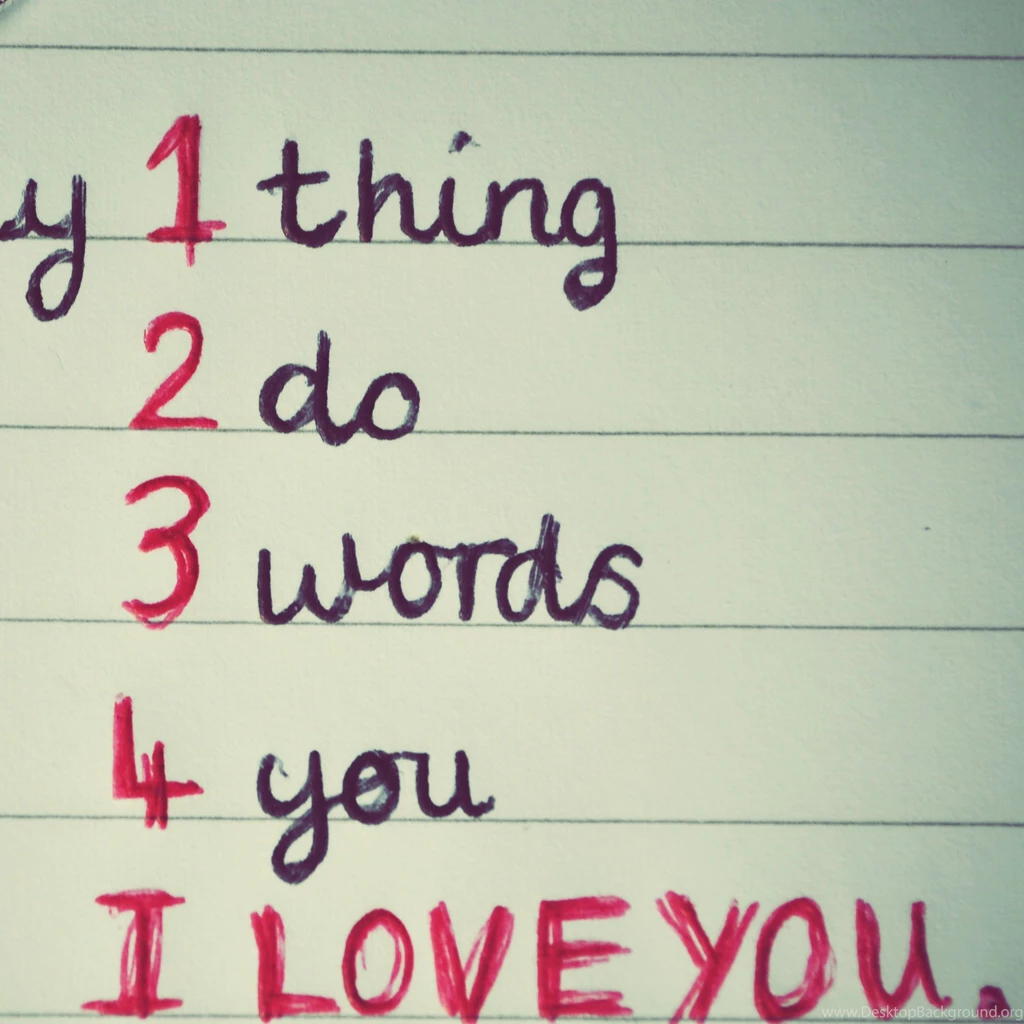 y 1 thing
2 do
3 words
4 you
I LOVE YOU.
www.DesktopBackground.org